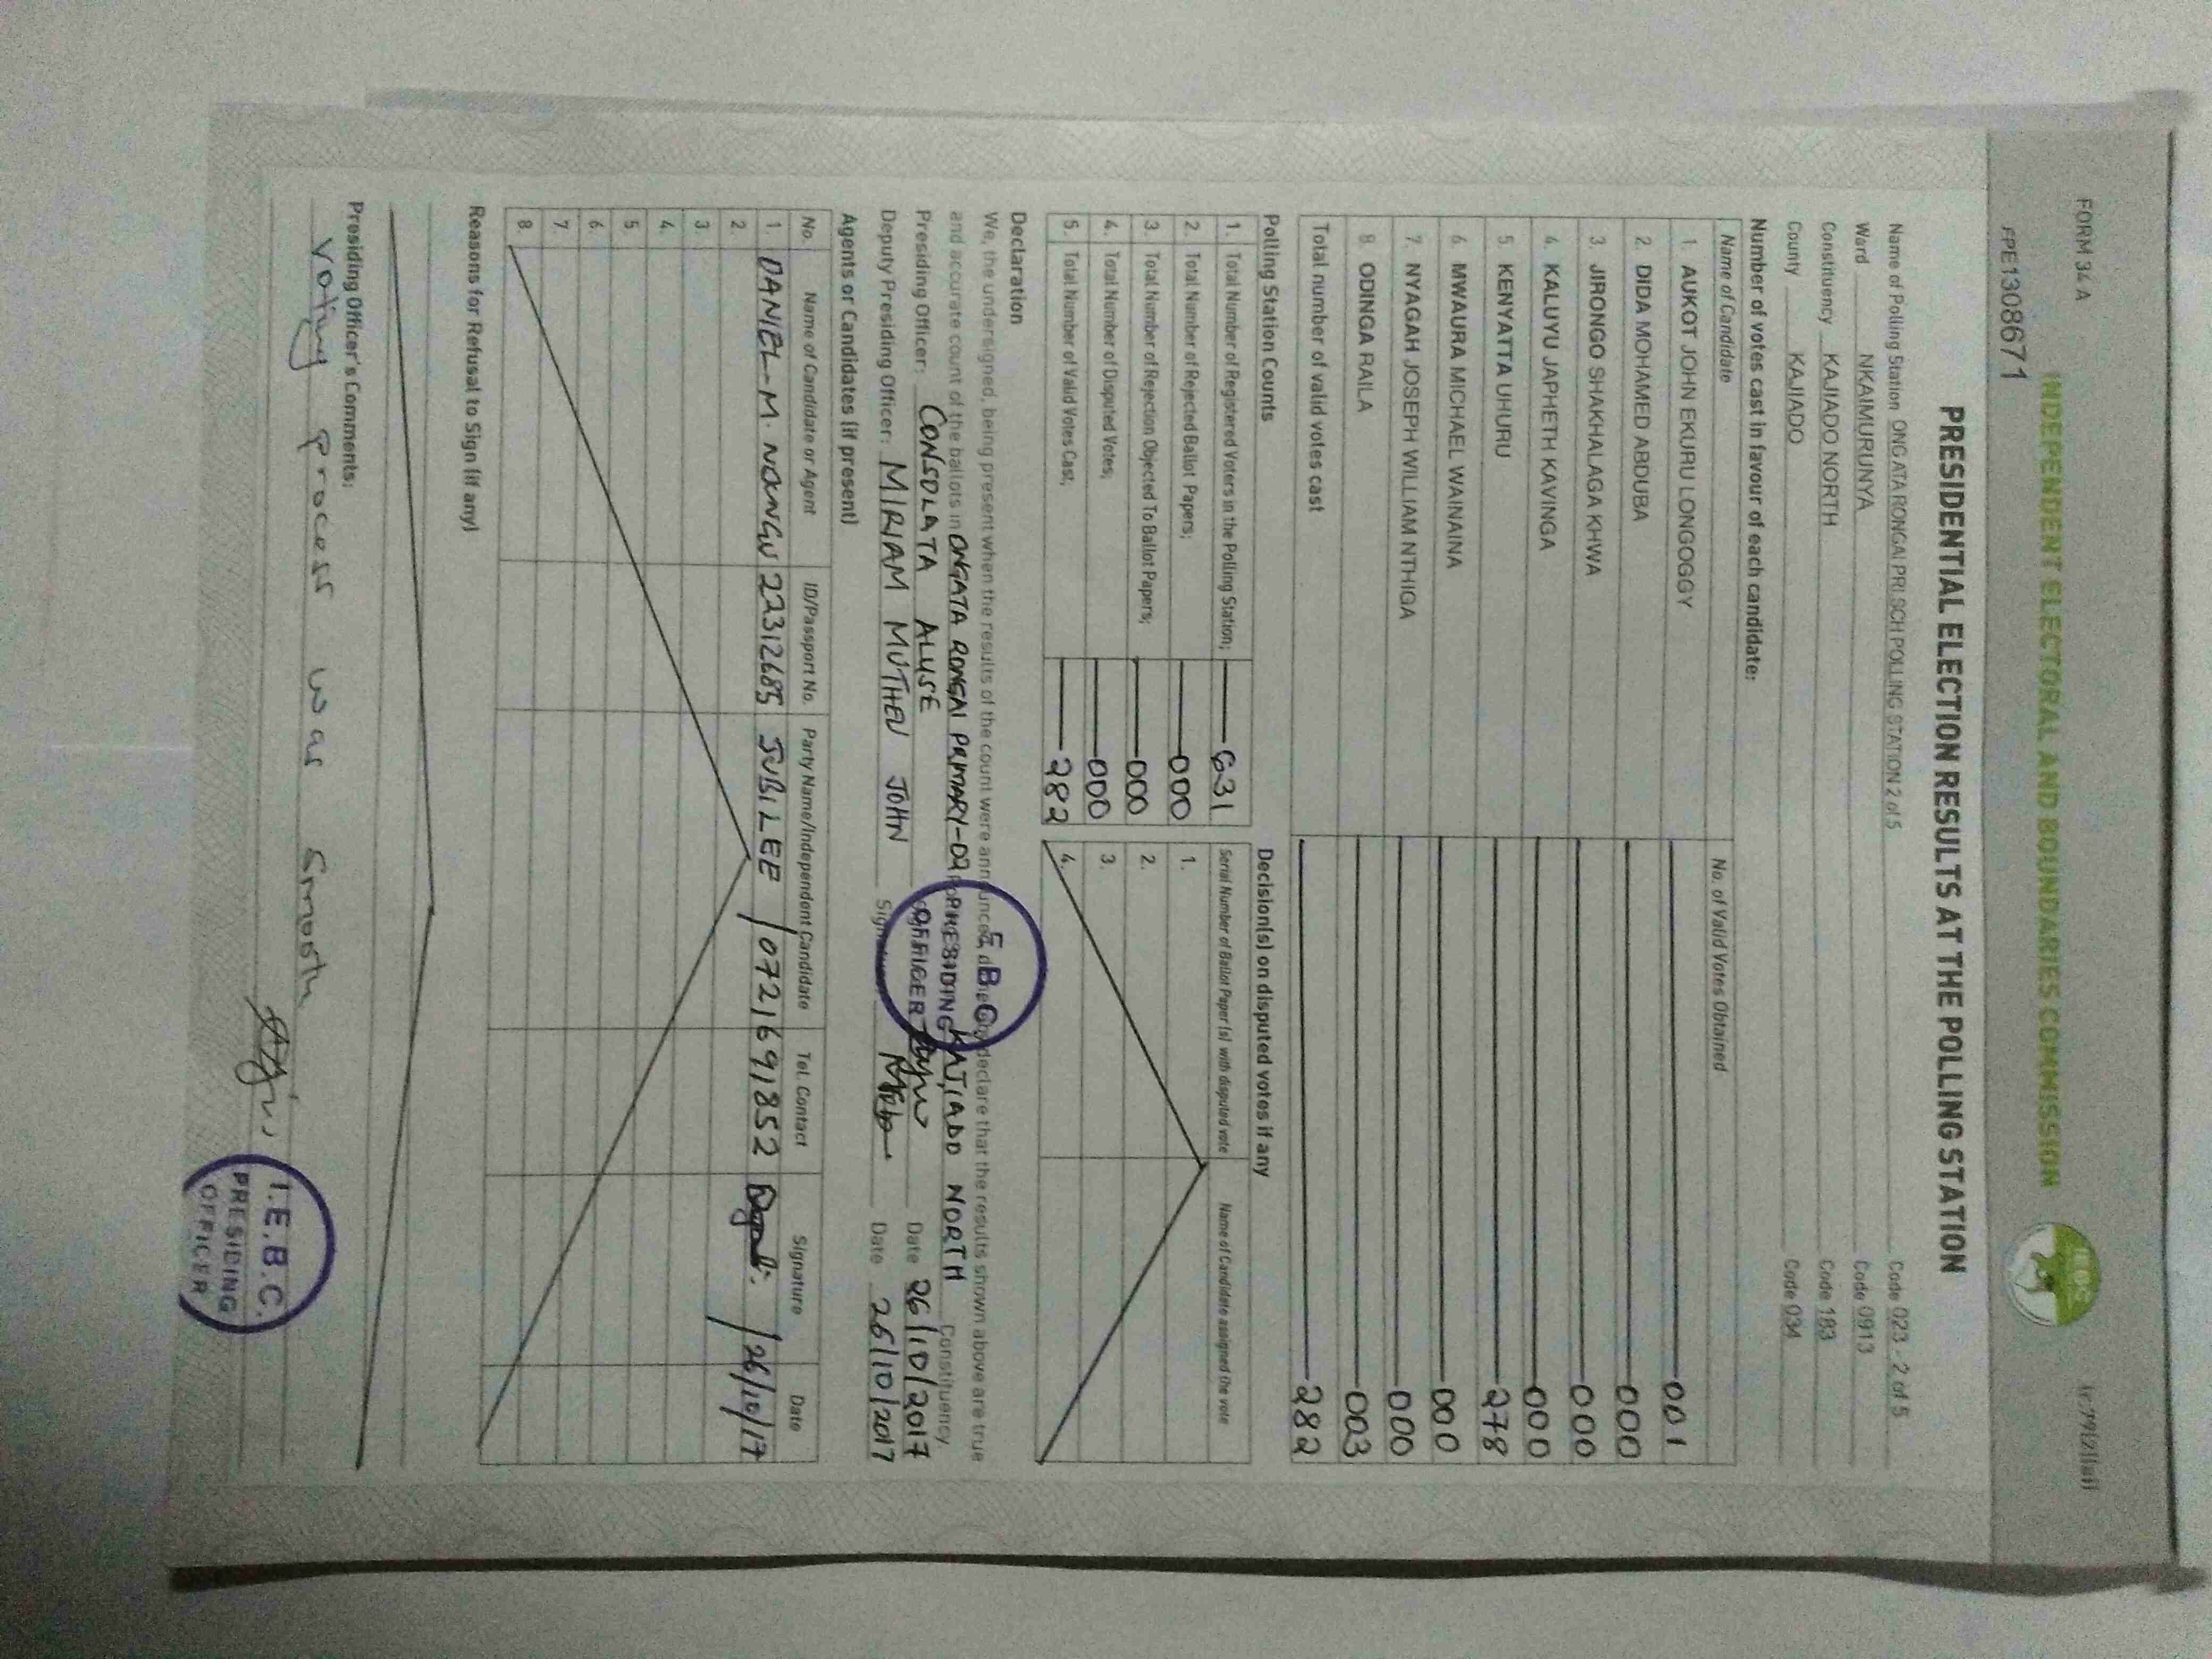 FORM 34 A
INDEPENDENT ELECTORAL AND BOUNDARIES COMMISSION
iebc
FPE1308671
PRESIDENTIAL ELECTION RESULTS AT THE POLLING STATION
Name of Polling Station ONGATA RONGAI PRI SCH POLLING STATION 2 of 5 Code 023 - 2 of 5
Ward NKAIMURUNYA Code 0913
Constituency KAJIADO NORTH Code 183
County KAJIADO Code 034
Number of votes cast in favour of each candidate:
Name of Candidate No. of Valid Votes Obtained
1. AUKOT JOHN EKURU LONGOGGY 001
2. DIDA MOHAMED ABDUBA 000
3. JIRONGO SHAKHALAGA KHWA 000
4. KALUYU JAPHETH KAVINGA 000
5. KENYATTA UHURU 278
6. MWAURA MICHAEL WAINAINA 000
7. NYAGAH JOSEPH WILLIAM NTHIGA 000
8. ODINGA RAILA 003
Total number of valid votes cast 282
Polling Station Counts
1. Total Number of Registered Voters in the Polling Station; 631
2. Total Number of Rejected Ballot Papers; 000
3. Total Number of Rejection Objected To Ballot Papers; 000
4. Total Number of Disputed Votes; 000
5. Total Number of Valid Votes Cast; 282
Decision(s) on disputed votes if any
Serial Number of Ballot Paper (s) with disputed vote Name of Candidate assigned the vote
1.
2.
3.
4.
Declaration
We, the undersigned, being present when the results of the count were announced, do hereby declare that the results shown above are true
and accurate count of the ballots in ONGATA RONGAI PRIMARY-02 KAJIADO NORTH Constituency
Presiding Officer: CONSOLATA ALUSE Date 26/10/2017
Deputy Presiding Officer: MIRIAM MUTHEU JOHN Signature Date 26/10/2017
PRESIDING
OFFICER
Agents or Candidates (if present)
No. Name of Candidate or Agent ID/Passport No. Party Name/Independent Candidate Tel. Contact Signature Date
1. DANIEL M. 22312685 JUBILEE / 0721691852 26/10/17
2.
3.
4.
5.
6.
7.
8.
Reasons for Refusal to Sign (if any)
Presiding Officer's Comments:
Voting process was smooth
I.E.B.C.
PRESIDING
OFFICER